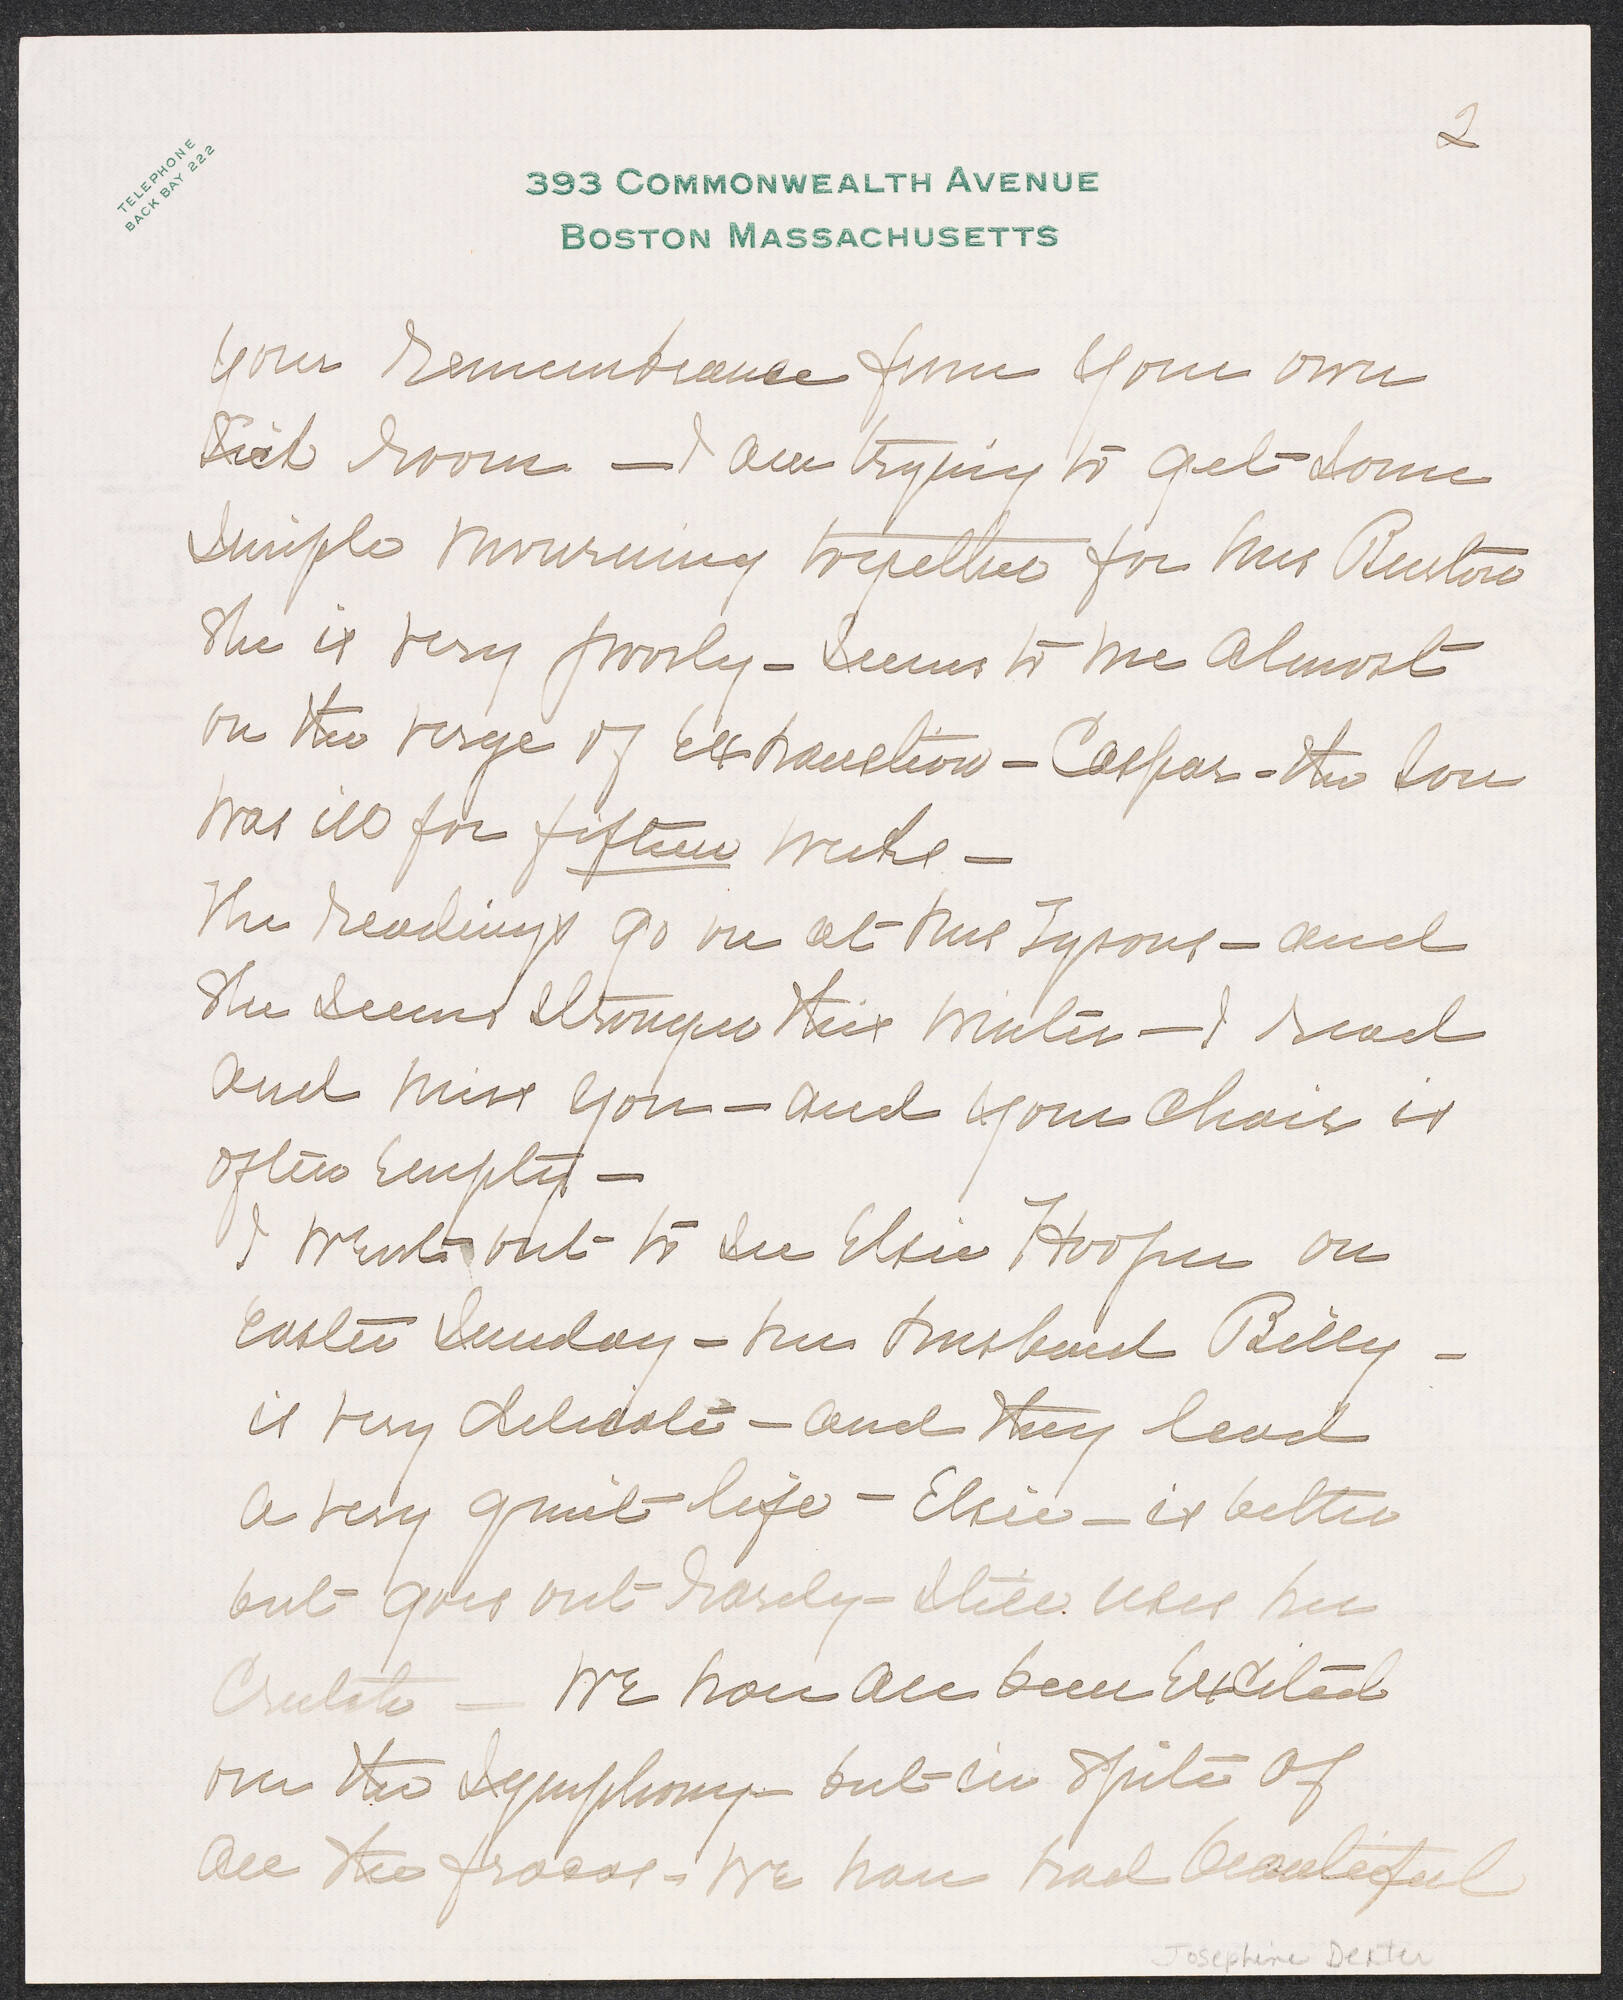 2
TELEPHONE
BACK BAY 222
393 COMMONWEALTH AVENUE
BOSTON MASSACHUSETTS
your remembrance from your own
sick room — I am trying to get some
simple mourning together for Mrs
She is very poorly — seems to me almost
on the verge of exhaustion — Caspar - the son
was ill for fifteen weeks —
The readings go on at Mrs Tysons — and
she seems stronger this winter — I read
and miss you — and your chair is
often empty —
I went out to see Elsie Hooper on
Easter Sunday — her husband Billy —
is very delicate — and they lead
a very quiet life — Elsie — is better
but goes out rarely — still uses her
Crutch — We have all been excited
over the Symphony — but in spite of
all the fracas — we have had beautiful
Josephine Dexter